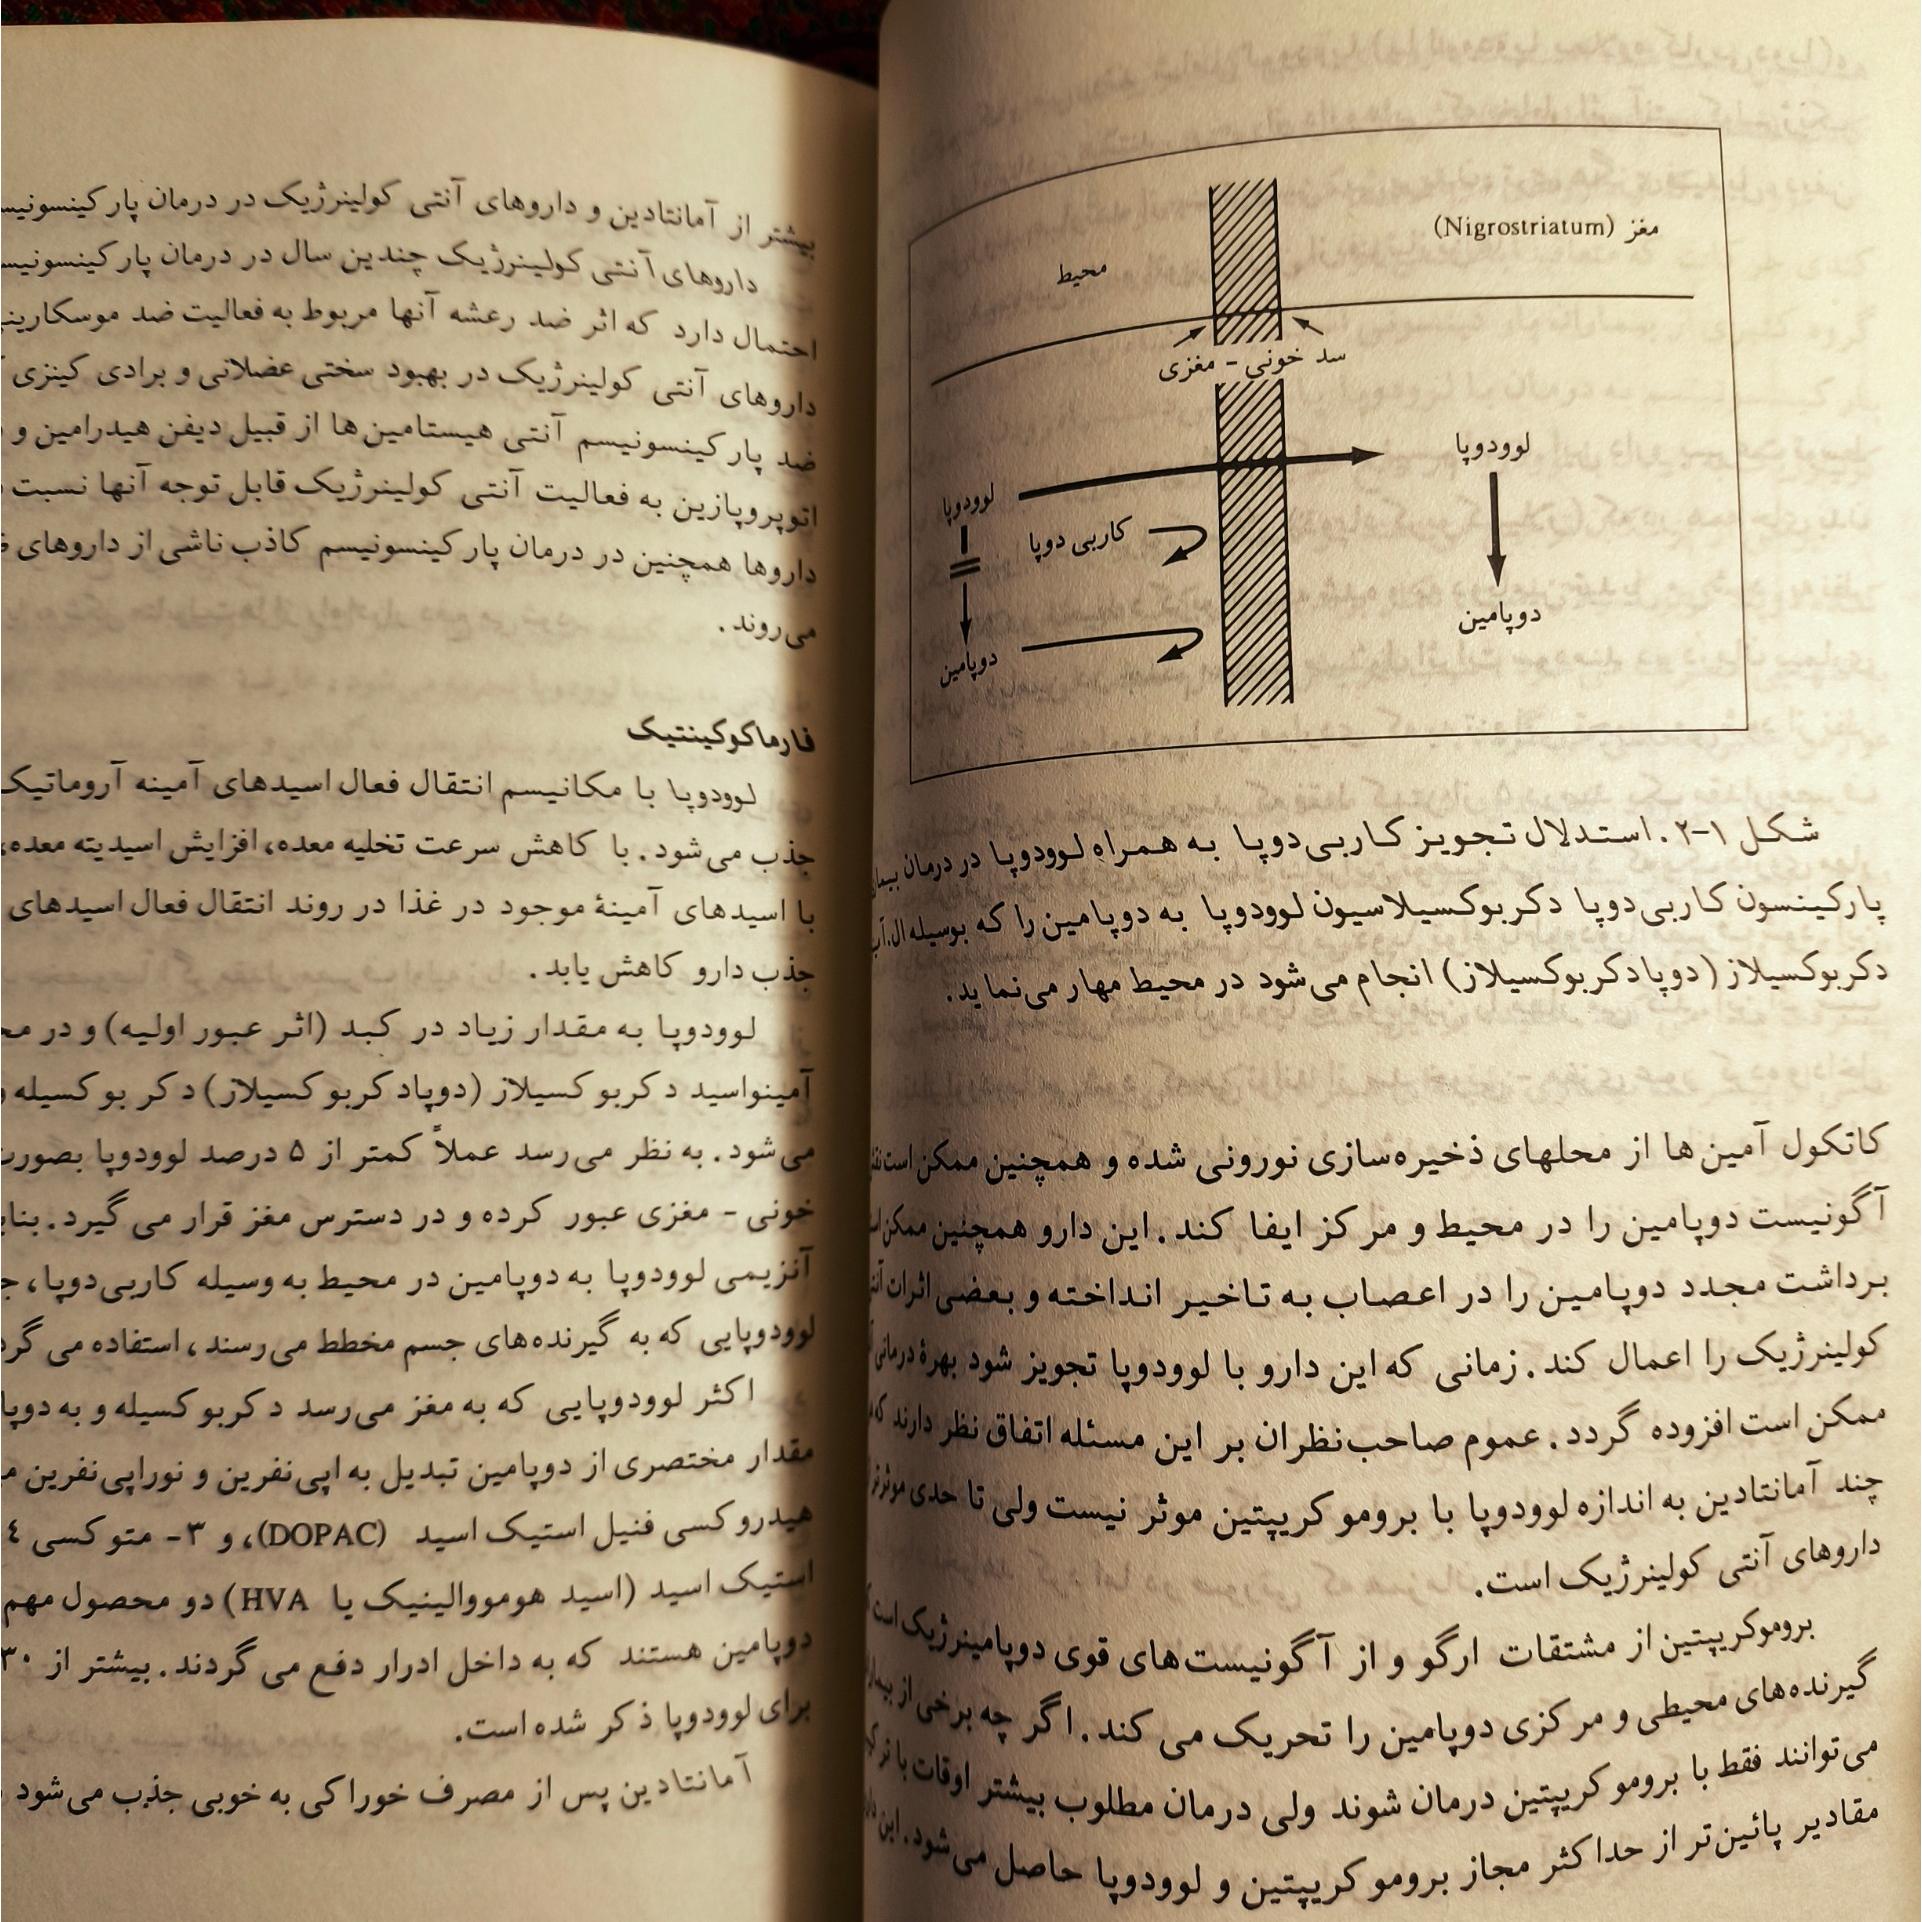 مغز (Nigrostriatum)
محیط
سد خونی - مغزی
لوودوپا
لوودوپا
کاربی دوپا
دوپامین
دوپامین
شکل ۱-۲. استدلال تجویز کاربی‌دوپا به همراه لوودوپا در درمان
پارکینسون کاربی‌دوپا دکربوکسیلاسیون لوودوپا به دوپامین را که بوسیله ال.
دکربوکسیلاز (دوپادکربوکسیلاز) انجام می‌شود در محیط مهار می‌نماید.
کاتکول آمین ها از محلهای ذخیره‌سازی نورونی شده و همچنین ممکن است
آگونیست دوپامین را در محیط و مرکز ایفا کند. این دارو همچنین ممکن
برداشت مجدد دوپامین را در اعصاب به تاخیر انداخته و بعضی اثرات
کولینرژیک را اعمال کند. زمانی که این دارو با لوودوپا تجویز شود بهرهٔ درمانی
ممکن است افزوده گردد. عموم صاحب‌نظران بر این مسئله اتفاق نظر دارند
چند آمانتادین به اندازه لوودوپا با بروموکریپتین موثر نیست ولی تا حدی موثرتر
داروهای آنتی کولینرژیک است.
بروموکریپتین از مشتقات ارگو و از آگونیست‌های قوی دوپامینرژیک است
گیرنده‌های محیطی و مرکزی دوپامین را تحریک می کند. اگر چه برخی از
می‌توانند فقط با بروموکریپتین درمان شوند ولی درمان مطلوب بیشتر اوقات با
مقادیر پائین‌تر از حداکثر مجاز بروموکریپتین و لوودوپا حاصل می‌شود. این
بیشتر از آمانتادین و داروهای آنتی کولینرژیک در درمان
داروهای آنتی کولینرژیک چندین سال در درمان
احتمال دارد که اثر ضد رعشه آنها مربوط به فعالیت ضد
داروهای آنتی کولینرژیک در بهبود سختی عضلانی و برادی کینزی
ضد پارکینسونیسم آنتی هیستامین ها از قبیل دیفن هیدرامین و
اتوپروپازین به فعالیت آنتی کولینرژیک قابل توجه آنها نسبت
داروها همچنین در درمان پارکینسونیسم کاذب ناشی از داروهای
می‌روند.
فارماکوکینتیک
لوودوپا با مکانیسم انتقال فعال اسیدهای آمینه آروماتیک
جذب می‌شود. با کاهش سرعت تخلیه معده، افزایش اسیدیته معده،
با اسیدهای آمینهٔ موجود در غذا در روند انتقال فعال اسیدهای
جذب دارو کاهش یابد.
لوودوپا به مقدار زیاد در کبد (اثر عبور اولیه) و در
آمینواسید دکربوکسیلاز (دوپادکربوکسیلاز) دکربوکسیله
می‌شود. به نظر می‌رسد عملاً کمتر از ۵ درصد لوودوپا
خونی - مغزی عبور کرده و در دسترس مغز قرار می گیرد.
آنزیمی لوودوپا به دوپامین در محیط به وسیله کاربی‌دوپا،
لوودوپایی که به گیرنده‌های جسم مخطط می‌رسند، استفاده می
اکثر لوودوپایی که به مغز می‌رسد دکربوکسیله و به
مقدار مختصری از دوپامین تبدیل به اپی‌نفرین و نوراپی‌نفرین
هیدروکسی فنیل استیک اسید (DOPAC)، و ۳- متوکسی ٤
استیک اسید (اسید هومووالینیک یا HVA) دو محصول مهم
دوپامین هستند که به داخل ادرار دفع می گردند. بیشتر از ۳۰
برای لوودوپا ذکر شده است.
آمانتادین پس از مصرف خوراکی به خوبی جذب می‌شود